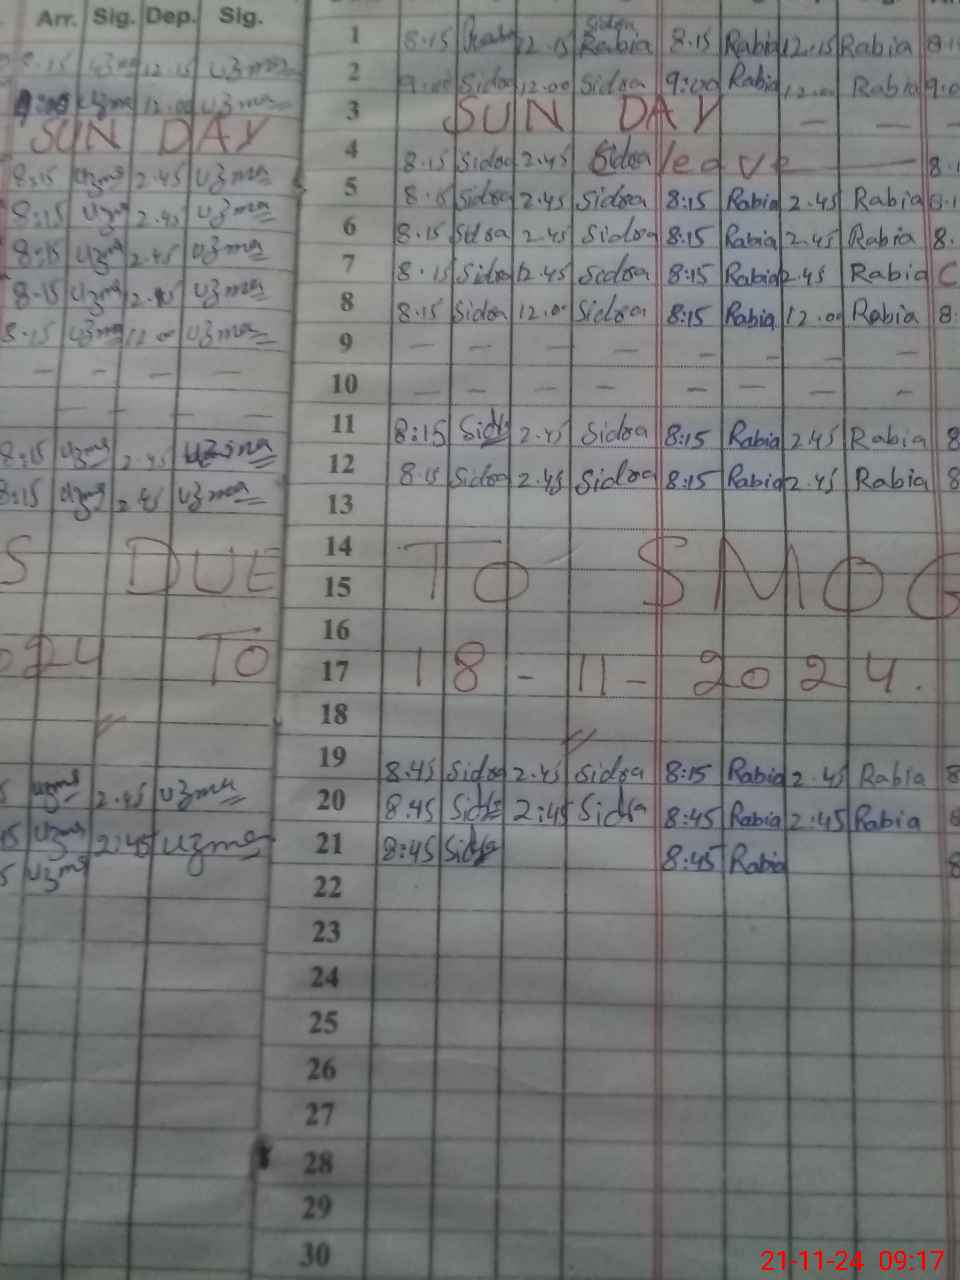 Arr. Sig. Dep. Sig.
8.15 uzma 12.15 uzma 1 8.15 Rabia 12.15 Sidra Rabia 8.15 Rabia 12.15 Rabia
9:00 uzma 12.00 uzma 2 9:00 Sidra 12.00 Sidra 9:00 Rabia 12.00 Rabia 9:0
SUN DAY 3 SUN DAY — —
8:15 uzma 2.45 uzma 4 8.15 Sidra 2.45 Sidra leave — 8.1
8:15 uzma 2.45 uzma 5 8.15 Sidra 2.45 Sidra 8:15 Rabia 2.45 Rabia 8.1
8:15 uzma 2.45 uzma 6 8.15 Sidra 2.45 Sidra 8:15 Rabia 2.45 Rabia 8.
8.15 uzma 2.45 uzma 7 8.15 Sidra 2.45 Sidra 8:15 Rabia 2.45 Rabia C
8.15 uzma 12.00 uzma 8 8.15 Sidra 12.00 Sidra 8:15 Rabia 12.00 Rabia 8:
— — — — 9 — — — — — — — —
— — — 10 — — — — — — — —
8:15 uzma 2.45 uzma 11 8:15 Sidra 2.45 Sidra 8:15 Rabia 2.45 Rabia 8
8:15 uzma 2.45 uzma 12 8.15 Sidra 2.45 Sidra 8:15 Rabia 2.45 Rabia 8
13
14
S DUE TO SMOG
15
16
024 TO 17 18-11-2024.
18
uzma 2.45 uzma 19 8.45 Sidra 2.45 Sidra 8:15 Rabia 2.45 Rabia 8
15 uzma 2:45 uzma 20 8:45 Sidra 2:45 Sidra 8:45 Rabia 2:45 Rabia 8
5 uzma 21 8:45 Sidra 8:45 Rabia 8
22
23
24
25
26
27
28
29
30
21-11-24 09:17